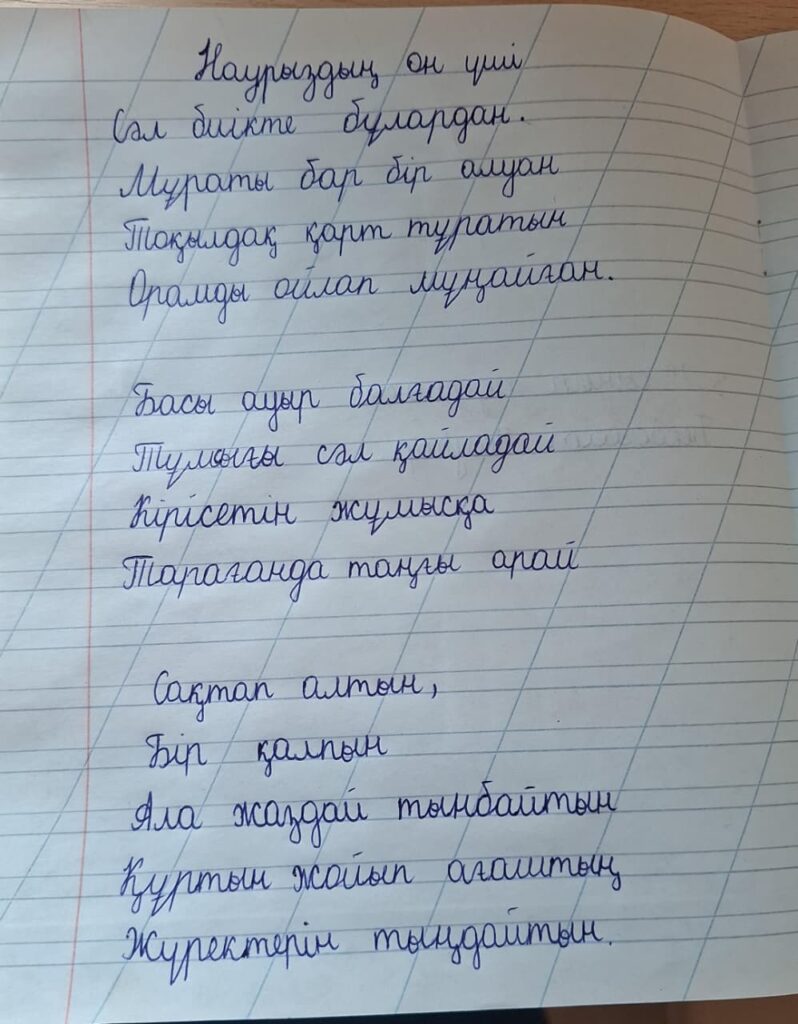 Наурыздың он үші
Сәл биікте бұлардан.
Мұраты бар бір алуан
Тоқылдақ қарт тұратын
Орамды ойлап мұңайған.
Басы ауыр балғадай
Тұмсығы сәл қайладай
Кірісетін жұмысқа
Тарағанда таңғы арай
Сақтап алтын,
Бір қалпын
Ала жаздай тынбайтын
Құртын жойып ағаштың
Жүректерін тыңдайтын.